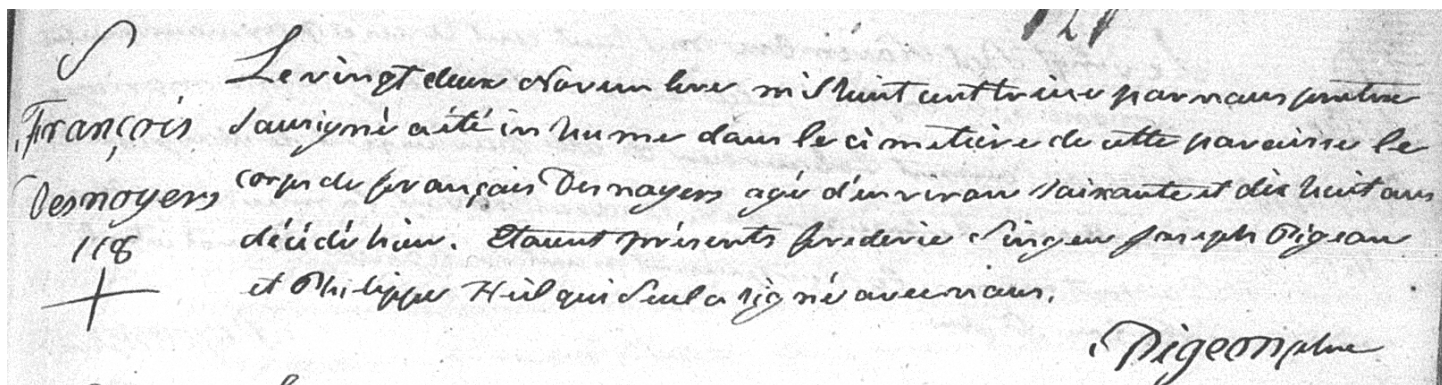 S
François
Desnoyers
118
Le vingt deux Novembre mil huit cent treize par nous prêtre
Sousigné a été inhumé dans le cimetière de cette paroisse le
corps de françois Desnoyers agé d'environ soixante et dix huit ans
décédé hier. Etaient présents frederic Singer Joseph Pigeon
et Philippe qui seul a signé avec nous.
Pigeon ptre